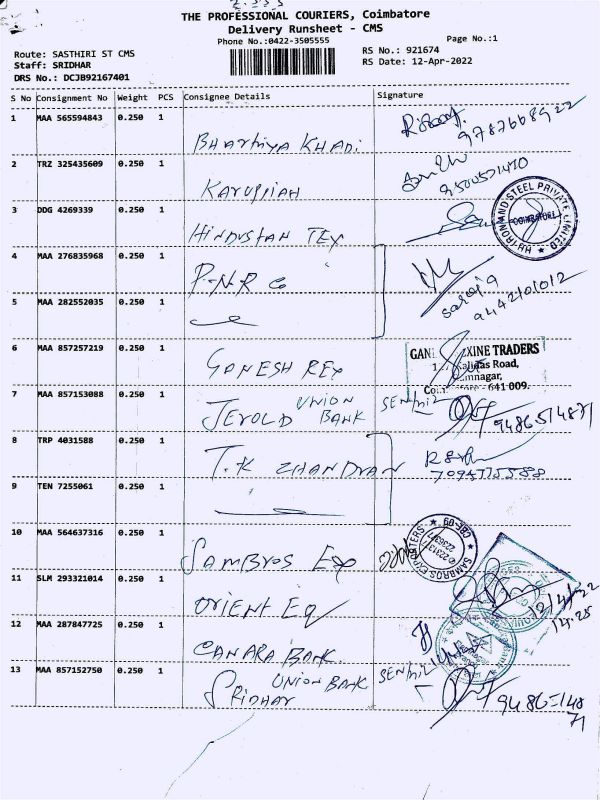 THE PROFESSIONAL COURIERS, Coimbatore
Delivery Runsheet - CMS
Phone No.:0422-3505555
Page No.:1
Route: SASTHIRI ST CMS
RS No.: 921674
Staff: SRIDHAR
RS Date: 12-Apr-2022
DRS No.: DCJB92167401
S No Consignment No Weight PCS Consignee Details Signature
1 MAA 565594843 0.250 1 Bhartiya Khadi
2 TRZ 325435609 0.250 1 Karuppiah
3 DDG 4269339 0.250 1 Hindustan Tex
IRON AND STEEL PRIVATE LIMITED
COIMBATORE
4 MAA 276835968 0.250 1 P.N.R Co
saroja
9442101012
5 MAA 282552035 0.250 1
6 MAA 857257219 0.250 1 Ganesh Rex
TRADERS
Kalidas Road,
641 009.
7 MAA 857153088 0.250 1 Jerold Union Bank
9486514871
8 TRP 4031588 0.250 1 T.K Chandran
9 TEN 7255061 0.250 1
10 MAA 564637316 0.250 1 Sambros Exp
SAMBROS EXPORTERS
CBE-09
11 SLM 293321014 0.250 1 Orient Eq
12/4/22
14.25
12 MAA 287847725 0.250 1 Canara Bank
13 MAA 857152750 0.250 1 Sridhar Union Bank
94865148
71